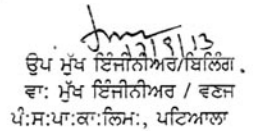 17/9/13
ਉਪ ਮੁੱਖ ਇੰਜੀਨੀਅਰ/ਬਿਲਿੰਗ.
ਵਾ: ਮੁੱਖ ਇੰਜੀਨੀਅਰ / ਵਣਜ
ਪੰ:ਸ:ਪਾ:ਕਾ:ਲਿਮ:, ਪਟਿਆਲਾ